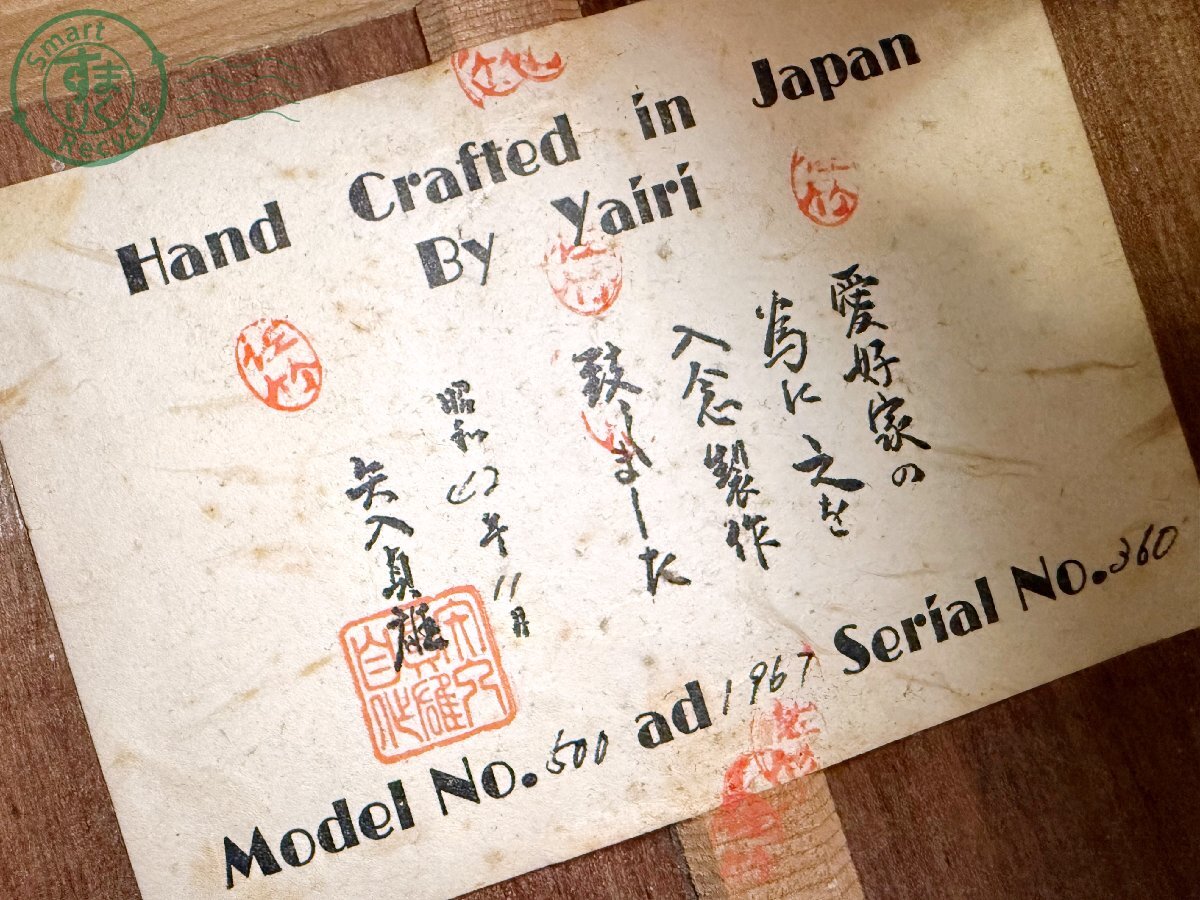 Smart
すま
りく
Recycle
Hand Crafted in Japan
By Yairi
愛好家の
為に之を
入念製作
致しました
昭和42年11月
矢入貞雄
Model No. 500 ad 1967 Serial No. 360